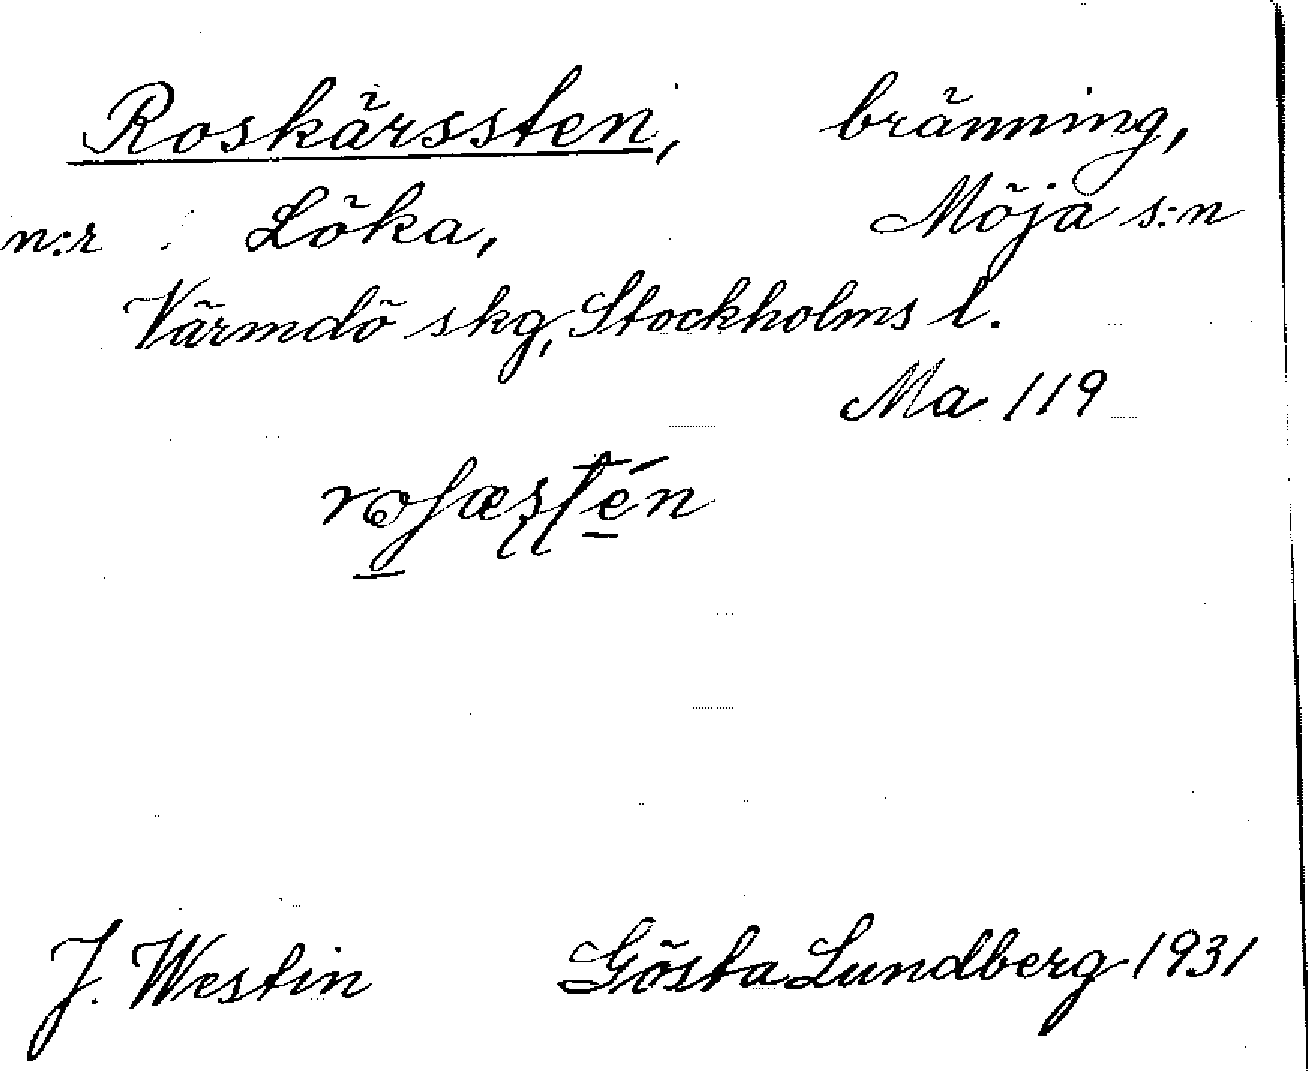 Roskärssten, bränning,
n:r Löka, Möja s:n
Värmdö skg, Stockholms l.
Ma 119
J. Westin Gösta Lundberg 1931